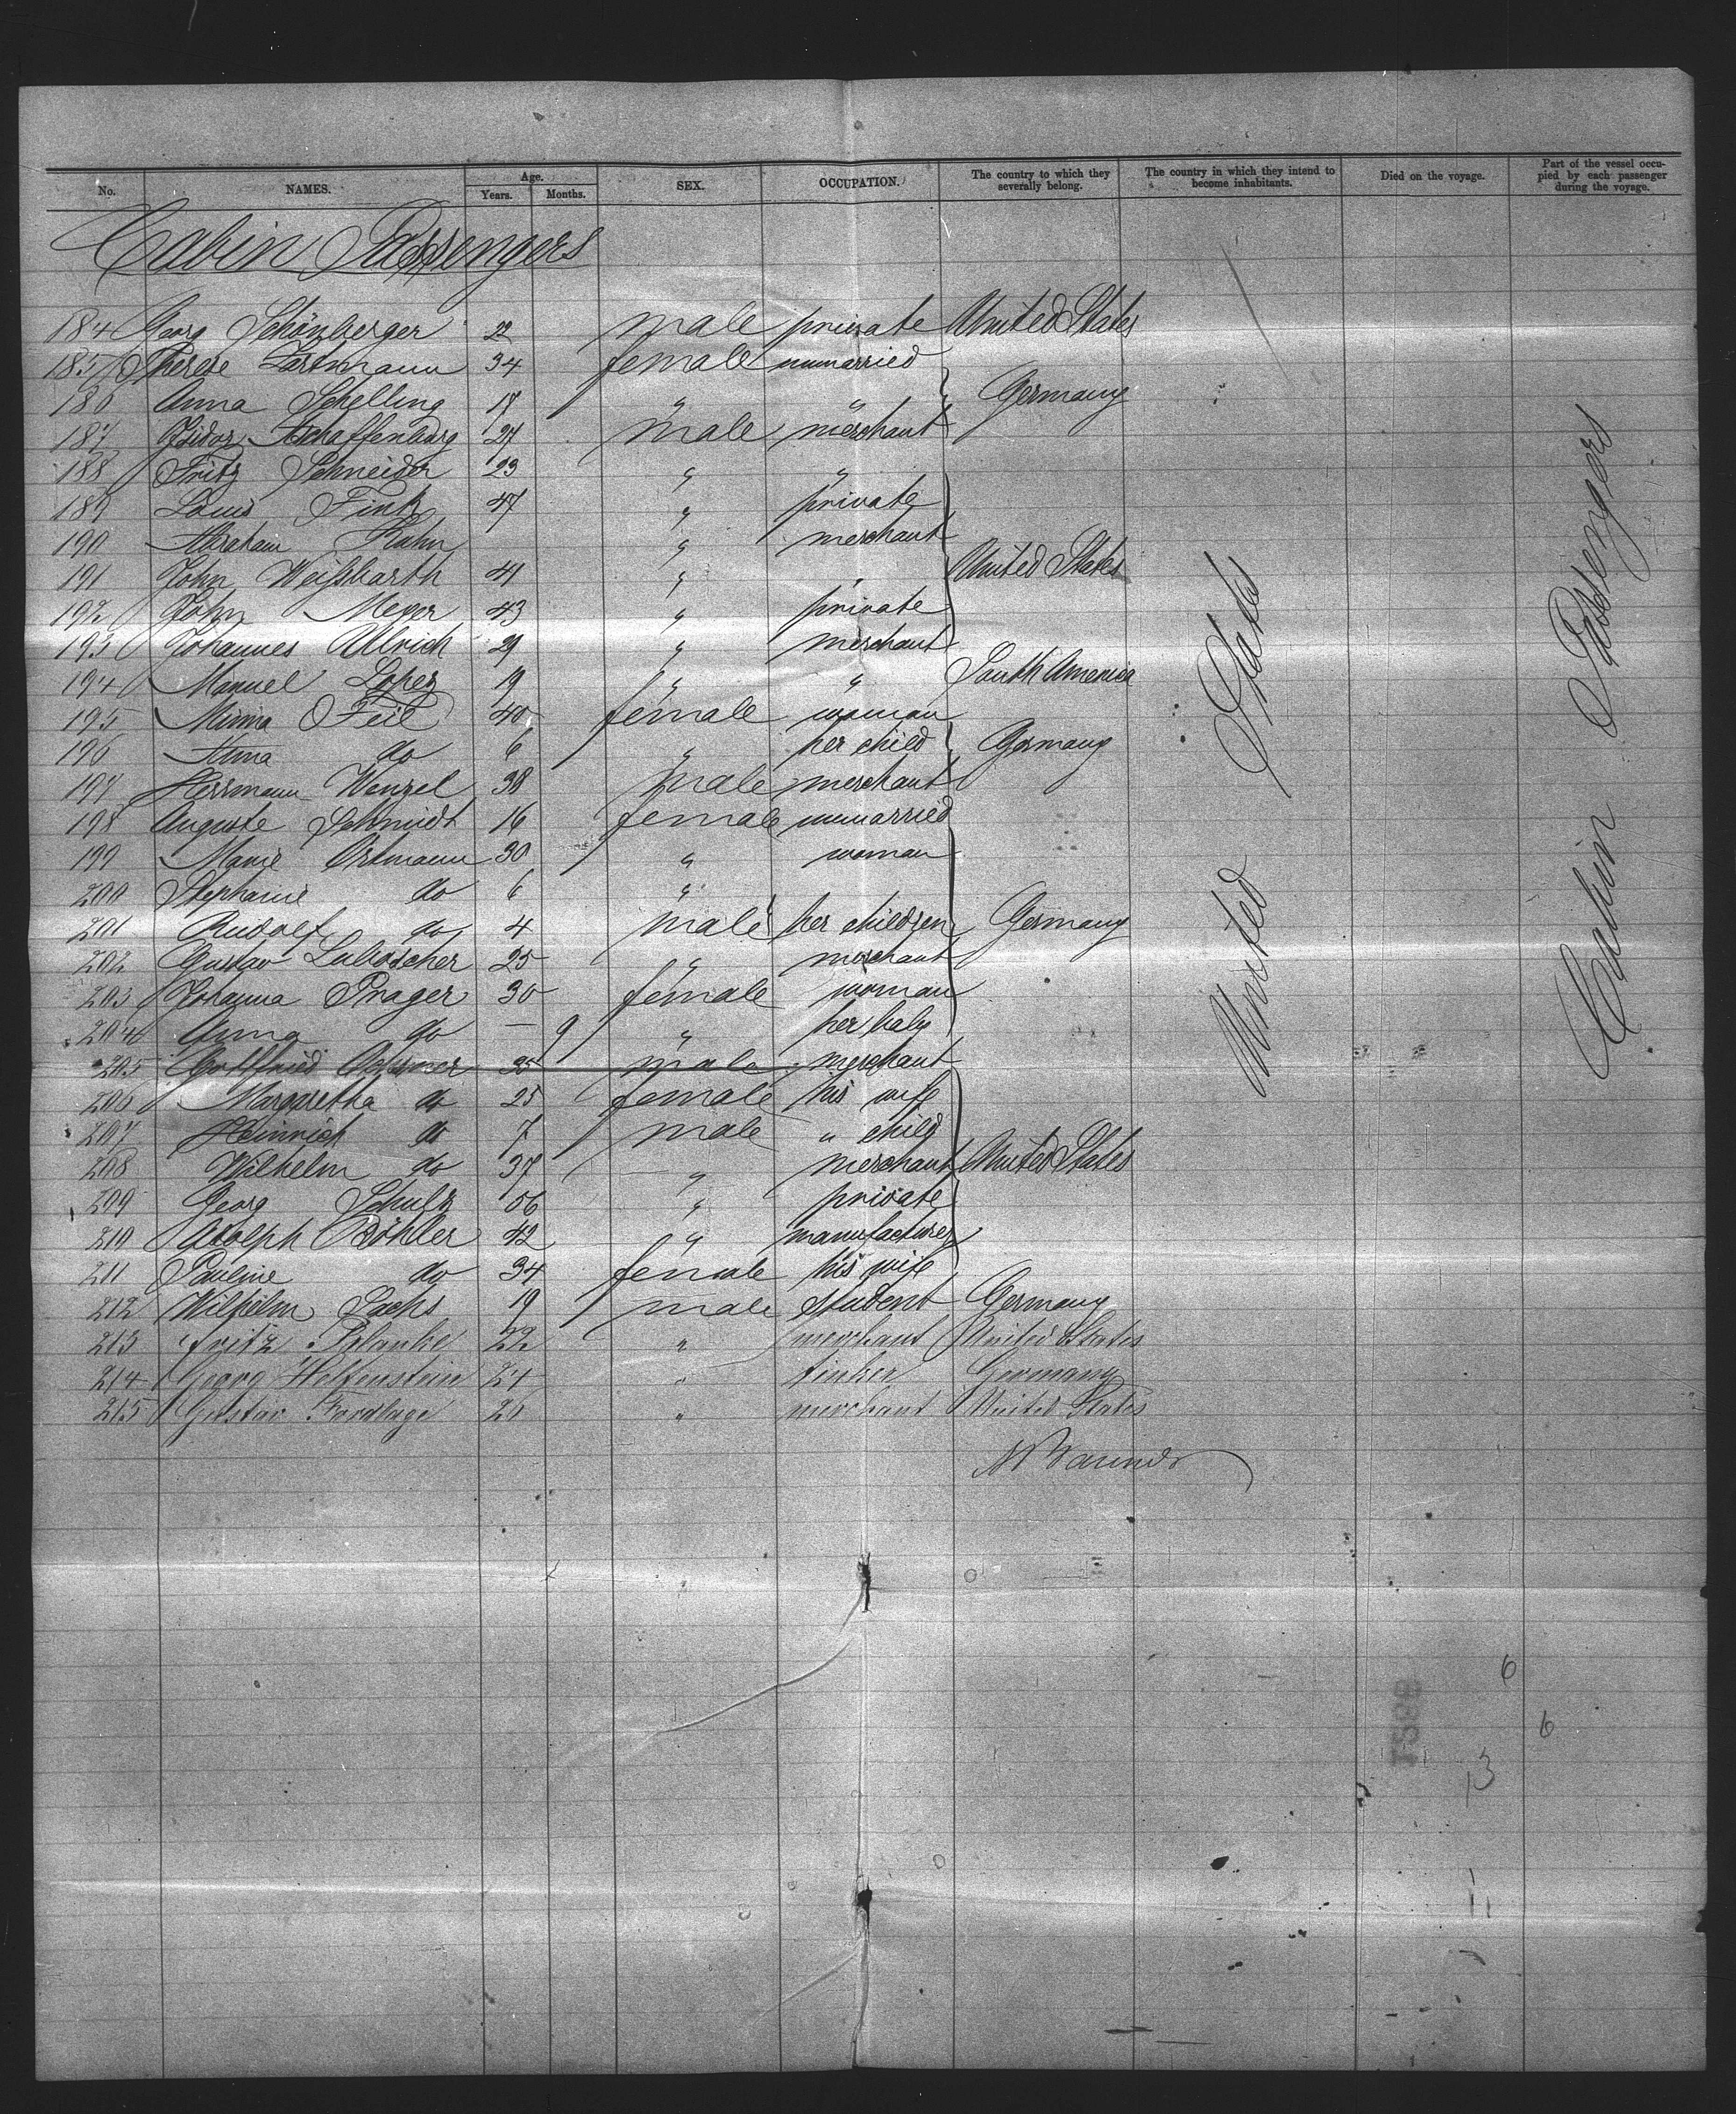 No. NAMES. Age. Years. Months. SEX. OCCUPATION. The country to which they severally belong. The country in which they intend to become inhabitants. Died on the voyage. Part of the vessel occupied by each passenger during the voyage.
Cabin Passengers
184 Georg Schönberger 22 male private United States
185 Therese 34 female unmarried
186 Anna Schelling 17 " " Germany
187 Isidor Aschaffenburg 27 male merchant
188 Fritz Schneider 23 " "
189 Louis Fink 47 " private
190 Abraham Kuhn " merchant
191 John Weißbarth 41 " " United States
192 John Meyer 43 " private
193 Johannes Ullrich 29 " merchant
194 Manuel Lopez 19 " " South America
195 Minna Feil 40 female woman
196 Anna do 6 " her child Germany
197 Herrmann Wenzel 38 male merchant
198 Auguste Schmidt 16 female unmarried
199 Marie Ortmann 30 " woman
200 Stephanie do 6 "
201 Rudolf do 4 male her children Germany
202 Gustav Luboscher 25 " merchant
203 Johanna Prager 30 female woman
204 Anna do — 9 " her baby
205 Gottfried 35 male merchant
206 Margaretha do 25 female his wife
207 Heinrich do 7 male " child
208 Wilhelm do 37 " merchant United States
209 Georg Schulz 56 " private
210 Adolph Böhler 42 " manufacturer
211 Pauline do 34 female his wife
212 Wilhelm Sachs 19 male student Germany
213 Fritz Blanke 22 " merchant United States
214 Georg Helfenstein 24 " tinker Germany
215 Gustav Fordlage 26 " merchant United States
United States
Cabin Passengers
6
6
13
11